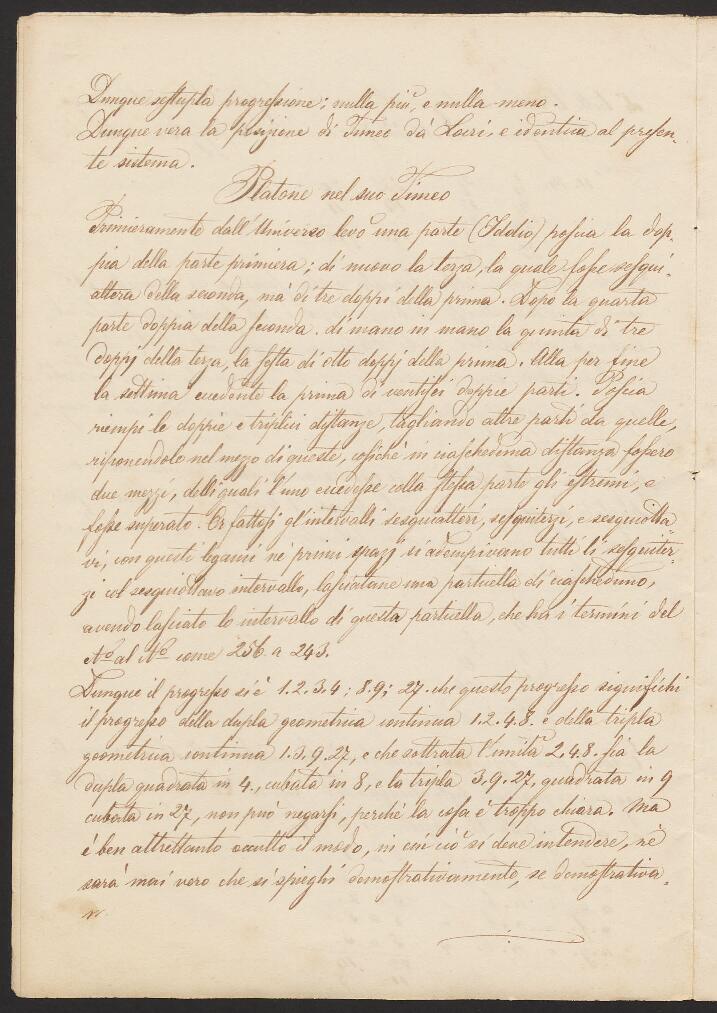 Dunque settupla progressione; nulla più, e nulla meno.
Dunque vera la posizione di Timeo da Locri, e identica al presen-
te sistema.
Platone nel suo Timeo
Primieramente dall'Universo levò una parte (Iddio) poscia la dop-
pia della parte primiera; di nuovo la terza, la quale fosse sesqui-
altera della seconda, mà di tre doppi della prima. Dopo la quarta
parte doppia della seconda. di mano in mano la quinta di tre
doppj della terza, la sesta di otto doppj della prima. Alla per fine
la settima eccedente la prima di ventisei doppie parti. Poscia
riempì le doppie e triplici distanze, tagliando altre parti da quelle,
riponendole nel mezo di queste, cosichè in ciascheduna distanza fossero
due mezzi, delli quali l'uno eccedesse colla stessa parte gli estremi, e
fosse superato. Or fattosi gl'intervalli sesquialteri, sesquiterzi, e sesquiotta
vi, con questi legami nè primi spazj si adempivano tutti li sesquiter-
zi col sesquiottavo intervallo, lasciatane una particella di ciascheduno,
avendo lasciato lo intervallo di questa particella, che ha i termini del
N.º al N.º come 256 a 243.
Dunque il progresso si è 1.2.3.4; 8.9; 27. che questo progresso significhi
il progresso della dupla geometrica continua 1.2.4.8. e della tripla
geometrica continua 1.3.9.27, e che sottrata l'unità 2.4.8. sia la
dupla quadrata in 4., cubata in 8, e la tripla 3.9.27, quadrata in 9
cubata in 27, non può negarsi, perchè la cosa è troppo chiara. Ma
è ben altrettanto occulto il modo, in cui ciò si deve intendere, nè
sarà mai vero che si spieghi demostrativamente, se demostrativa-